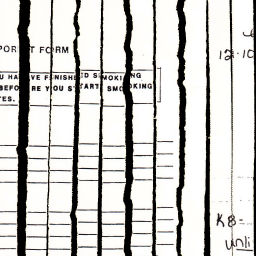 PORT FORM
12-10
U HAVE FINISHED SMOKING
BEFORE YOU START SMOKING
TES.
KB-
unli